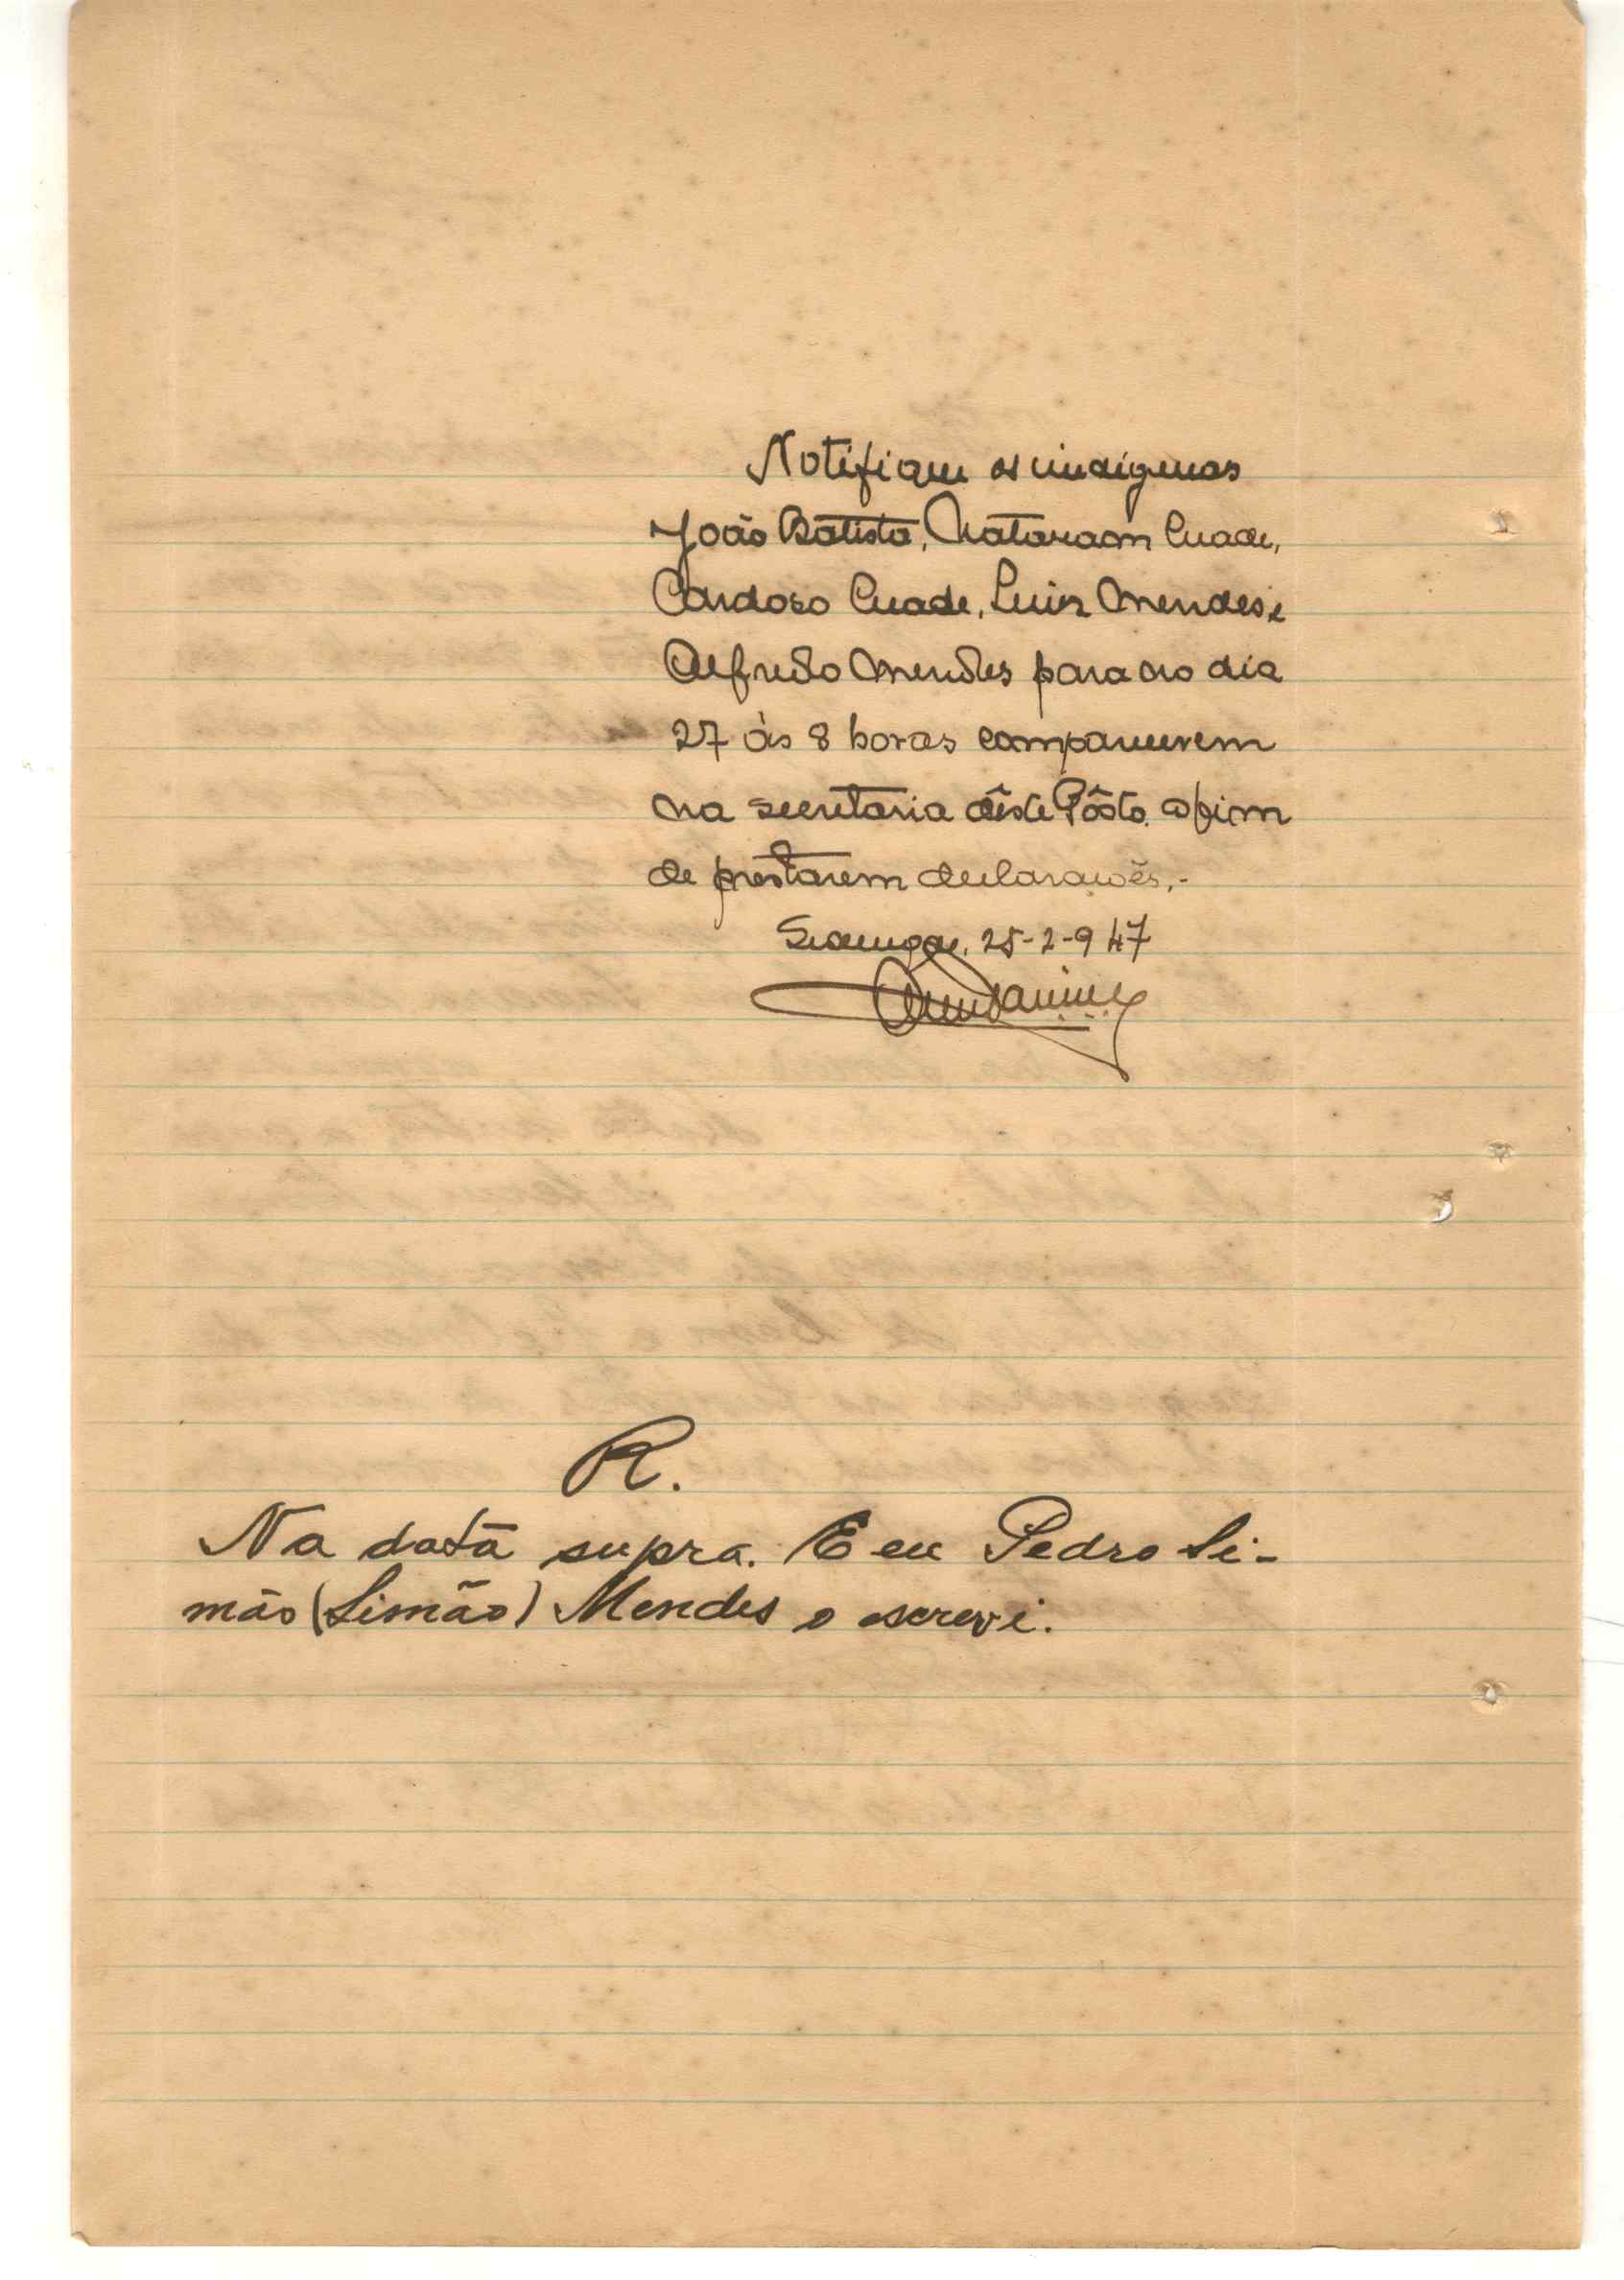 Notifique os indígenas
João Batista, Nataraam Cuade,
Cardoso Cuade, Luiz Mendes e
Alfredo Mendes para no dia
27 às 8 horas comparecerem
na secretaria dêste Pôsto afim
de prestarem declarações.-
25-2-947
R.
Na data supra. E eu Pedro Li-
mão (Limão) Mendes o escrevi.